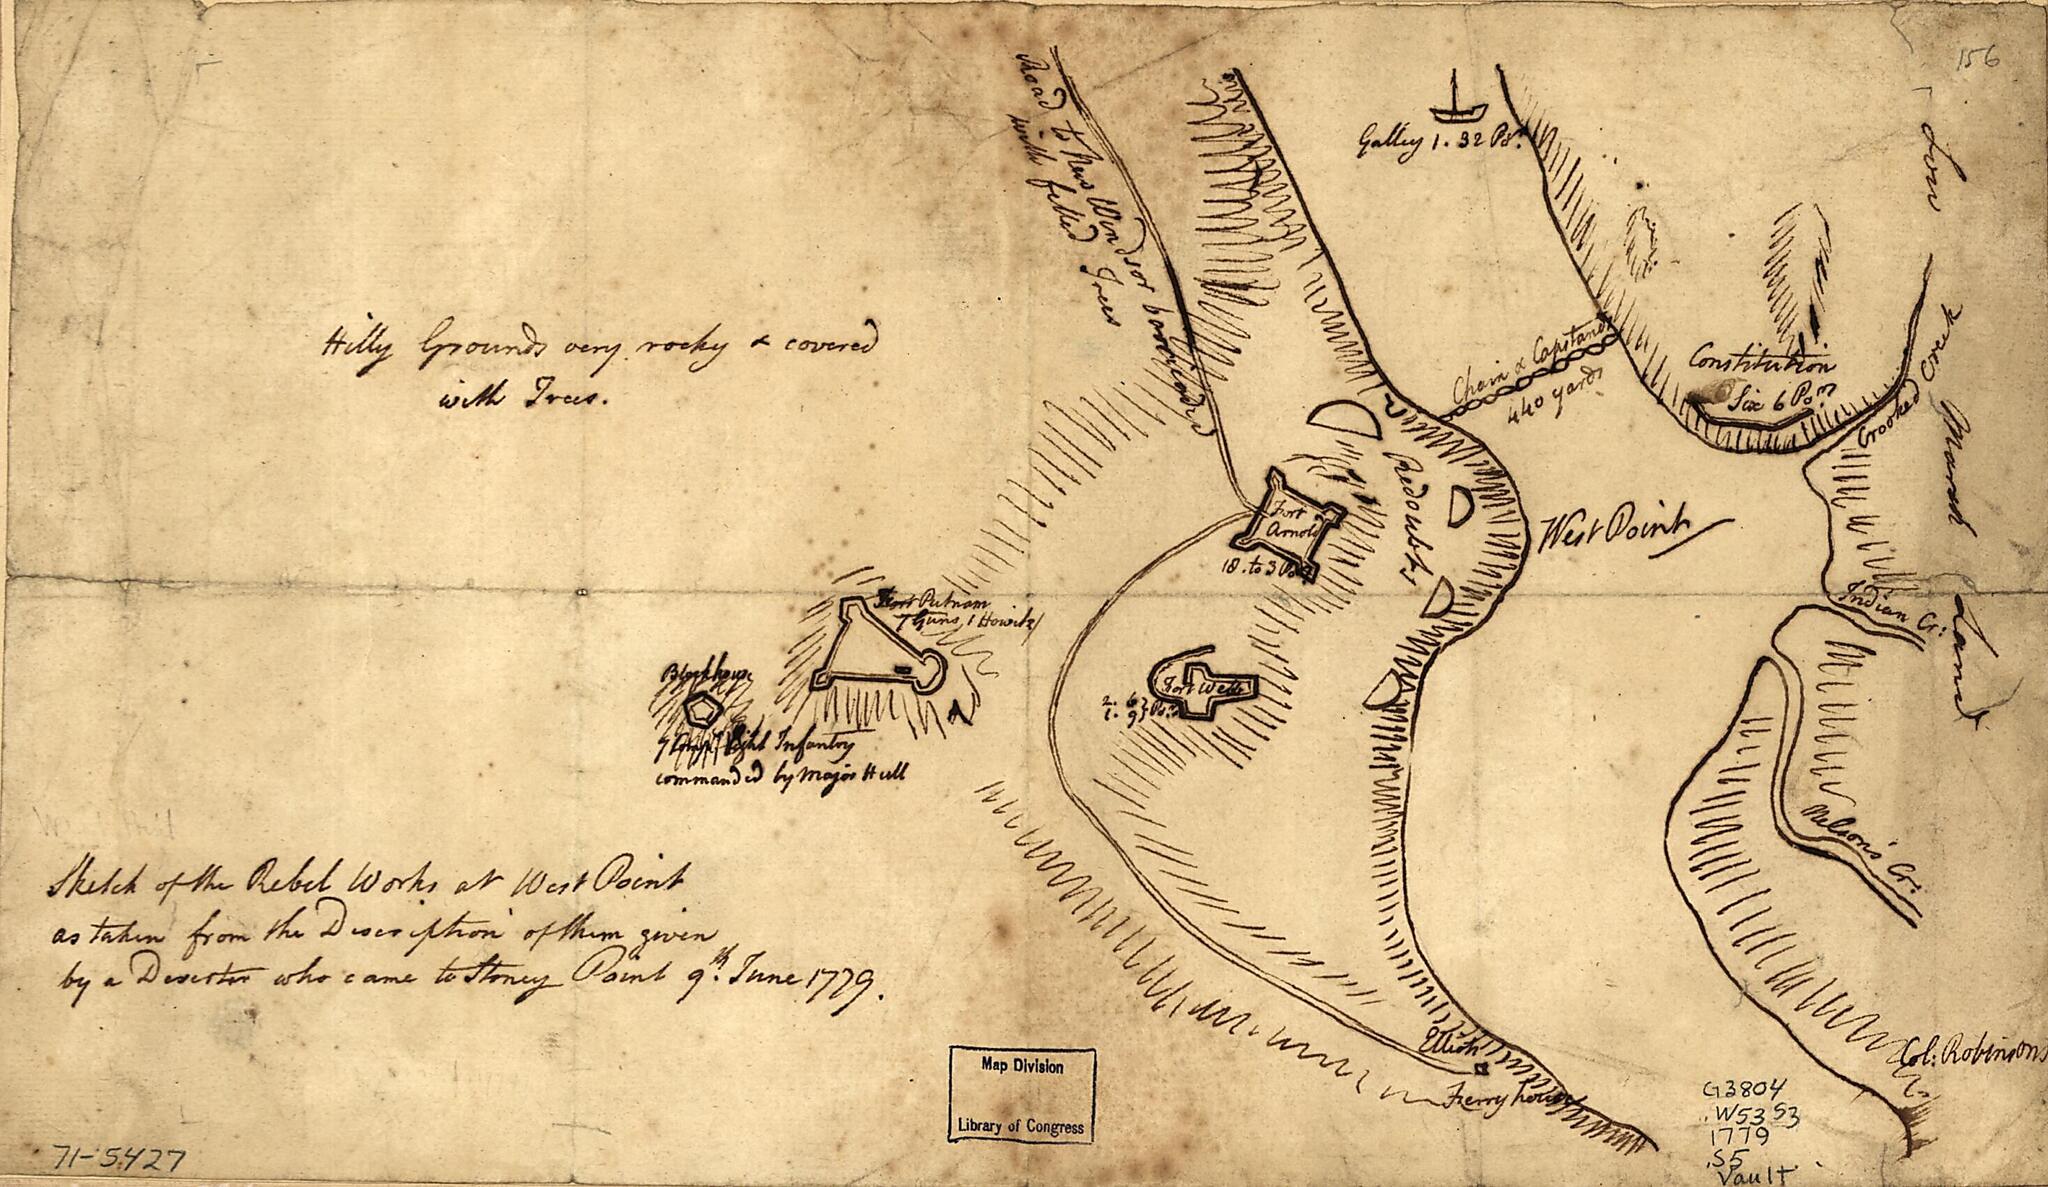 156
Galley 1. 32 Pr.
Road to New Windsor barricaded
with felled Trees
Low Marsh Land
Hilly Grounds very rocky & covered
with Trees.
Chain & Capstands
440 yards
Constitution
Six 6 Pors
Crooked Creek
Redoubts
Fort
Arnold
18. to 3
West Point
Indian Cr:
Fort Putnam
7 Guns, 1 Howitz
Blockhouse
Light Infantry
commanded by Major Hull
Fort Webb
2. 6
1. 9
Nelson's Cr:
Sketch of the Rebel Works at West Point
as taken from the Description of them given
by a Deserter who came to Stoney Point 9th. June 1779.
Elliots
Ferry house
Col: Robinsons
Map Division
Library of Congress
G3804
.W53S3
1779
.S5
Vault
71-5427